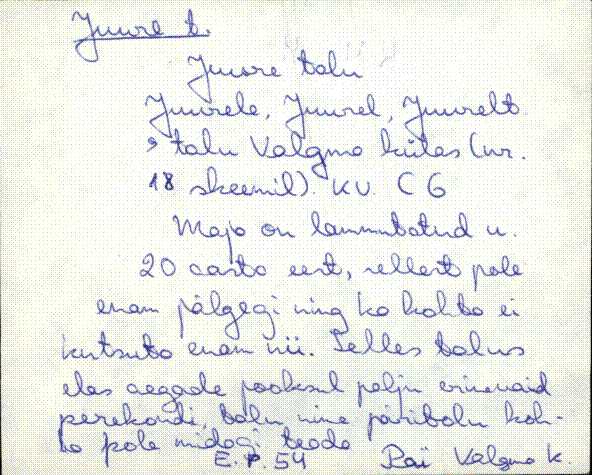 Juure t.
Juure talu
Juurele, Juurel, Juurelt
, talu Valgma külas (nr.
18 skeemil). KV. C6
Maja on lammutatud u.
20 aasta eest, sellest pole
enam jälgegi ning ka kohta ei
kutsuta enam nii. Selles talus
elas aegade jooksul palju erinevaid
perekondi, talu nime päritolu koh-
ta pole midagi teada
E.P. 54 Pai Valgma k.